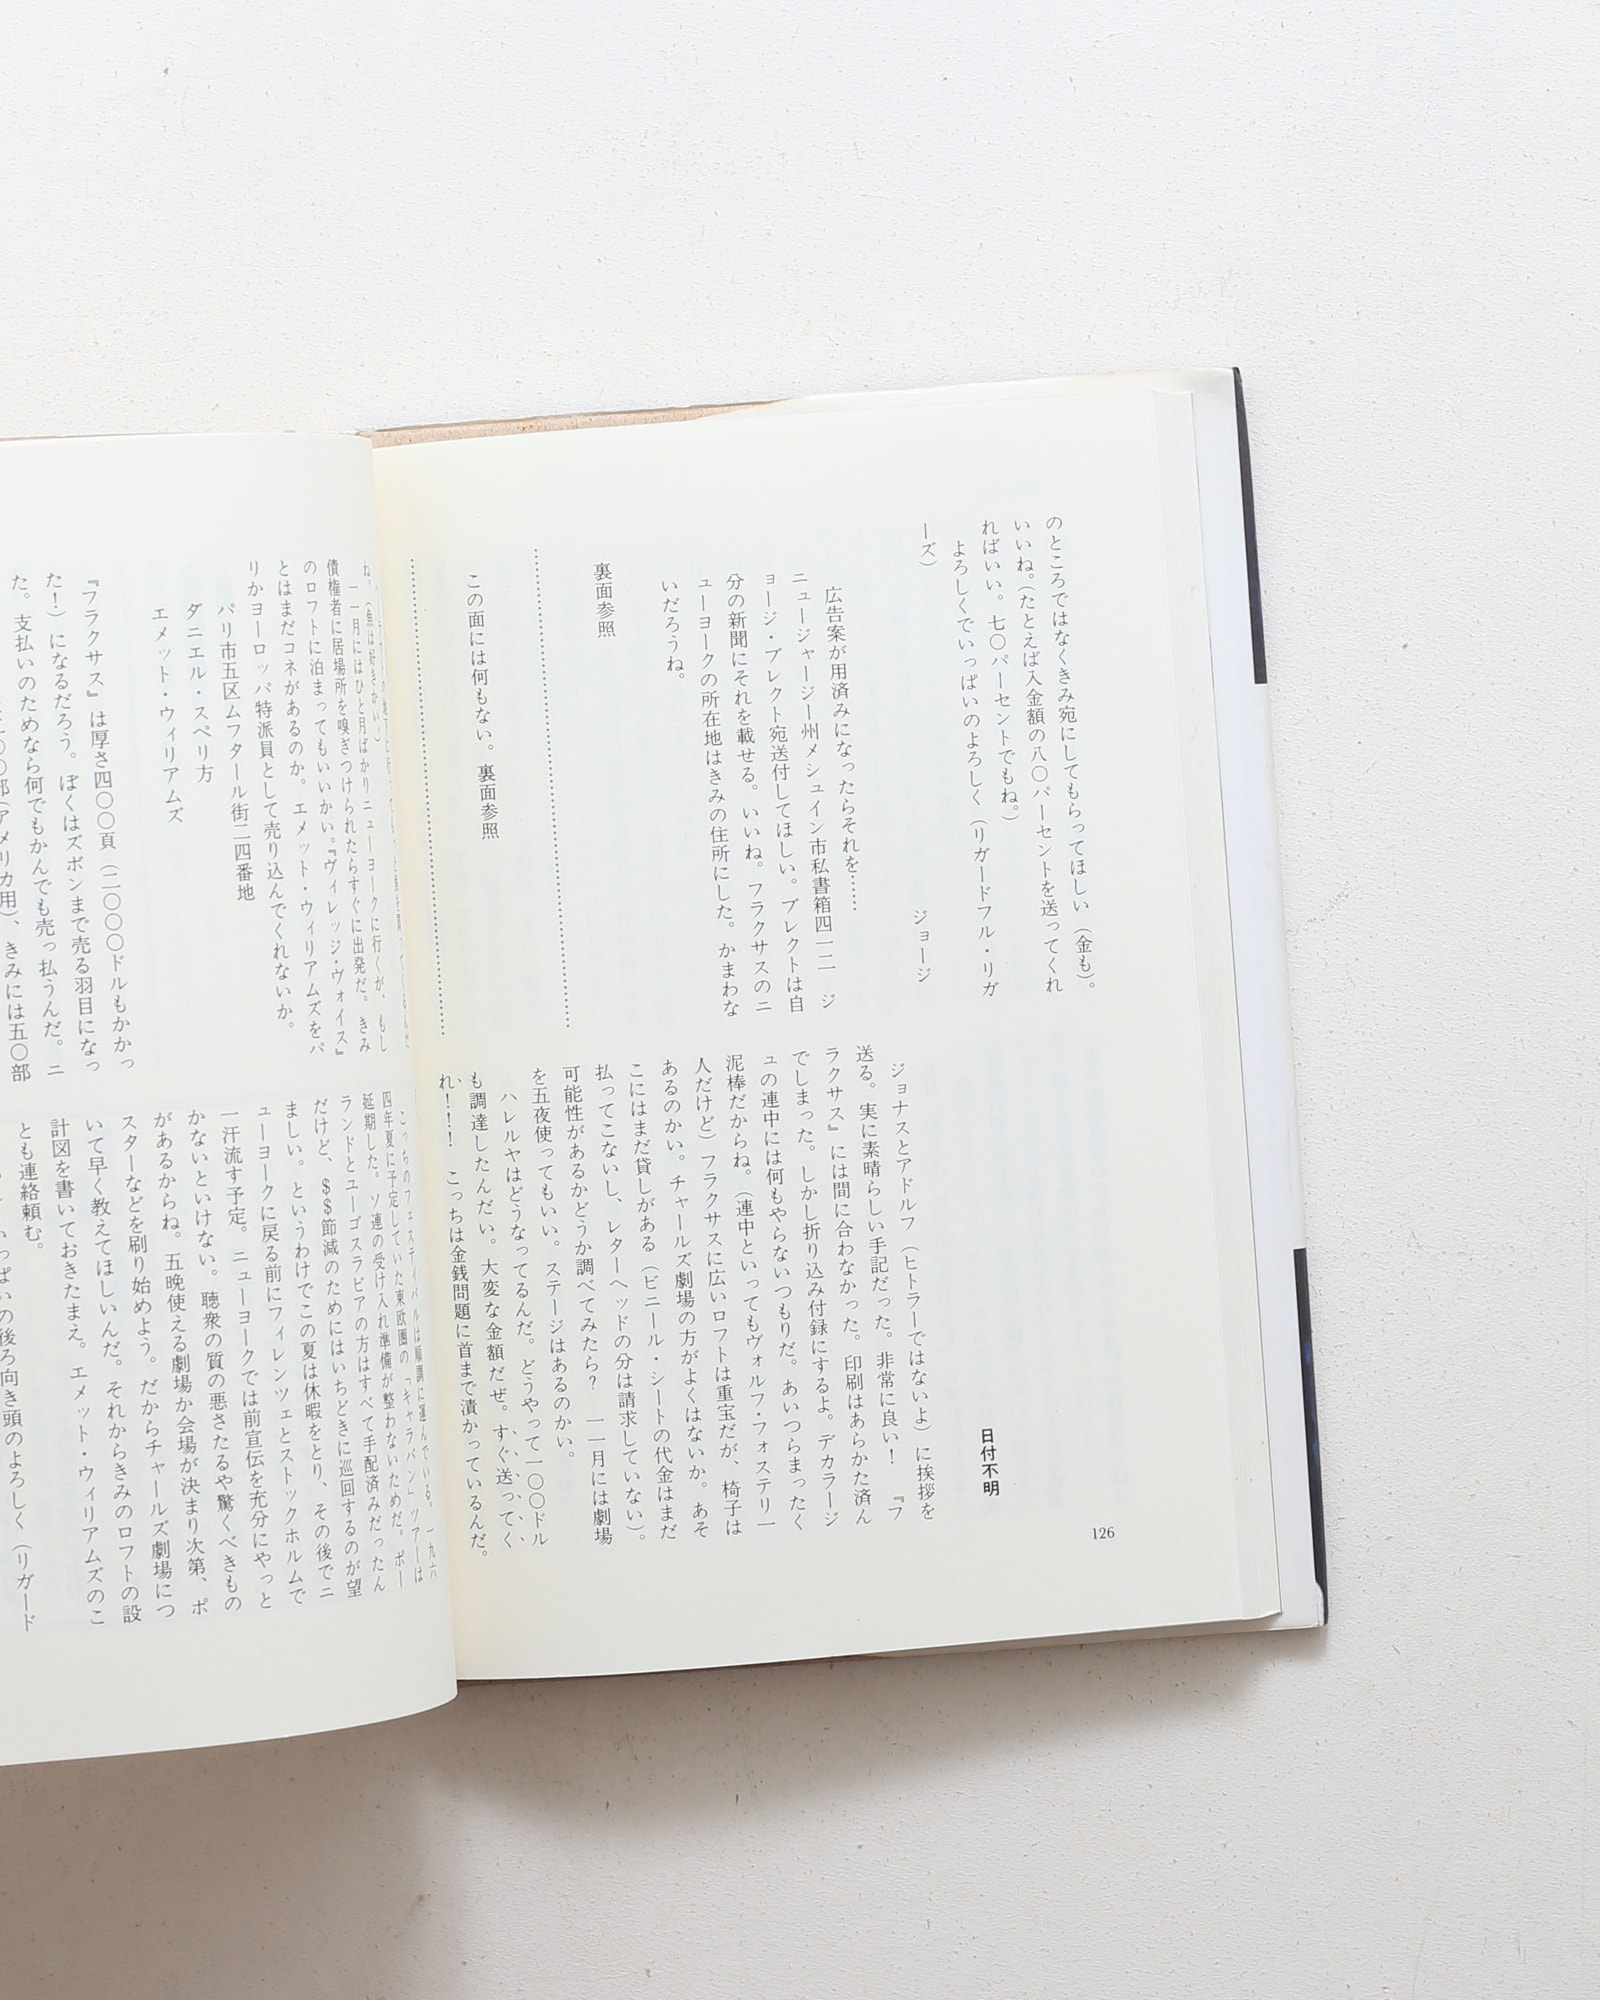 のところではなくきみ宛にしてもらってほしい（金も）。
いいね。（たとえば入金額の八〇パーセントを送ってくれ
ればいい。七〇パーセントでもね。）
よろしくでいっぱいのよろしく（リガードフル・リガ
ーズ）
ジョージ
広告案が用済みになったらそれを……
ニュージャージー州メシュイン市私書箱四一二　ジ
ョージ・ブレクト宛送付してほしい。ブレクトは自
分の新聞にそれを載せる。いいね。フラクサスのニ
ューヨークの所在地はきみの住所にした。かまわな
いだろうね。
裏面参照
この面には何もない。裏面参照
日付不明
ジョナスとアドルフ（ヒトラーではないよ）に挨拶を
送る。実に素晴らしい手記だった。非常に良い！　『フ
ラクサス』には間に合わなかった。印刷はあらかた済ん
でしまった。しかし折り込み付録にするよ。デカラージ
ュの連中には何もやらないつもりだ。あいつらまったく
泥棒だからね。（連中といってもヴォルフ・フォステリー
人だけど）フラクサスに広いロフトは重宝だが、椅子は
あるのかい。チャールズ劇場の方がよくはないか。あそ
こにはまだ貸しがある（ビニール・シートの代金はまだ
払ってこないし、レターヘッドの分は請求していない）。
可能性があるかどうか調べてみたら？　一一月には劇場
を五夜使ってもいい。ステージはあるのかい。
ハレルヤはどうなってるんだ。どうやって一〇〇ドル
も調達したんだい。大変な金額だぜ。すぐ送ってく
れ！！！　こっちは金銭問題に首まで漬かっているんだ。
126
か。（魚は好きかい）
一一月にはひと月ばかりニューヨークに行くが、もし
債権者に居場所を嗅ぎつけられたらすぐに出発だ。きみ
のロフトに泊まってもいいかい。『ヴィレッジ・ヴォイス』
とはまだコネがあるのか。エメット・ウィリアムズをパ
リかヨーロッパ特派員として売り込んでくれないか。
パリ市五区ムフタール街二四番地
ダニエル・スペリ方
エメット・ウィリアムズ
『フラクサス』は厚さ四〇〇頁（二〇〇〇ドルもかかっ
た！）になるだろう。ぼくはズボンまで売る羽目になっ
た。支払いのためなら何でもかんでも売っ払うんだ。ニ
〇〇部（アメリカ用）、きみには五〇部
こっちのフェスティバルは順調に運んでいる。一九六
四年夏に予定していた東欧圏の「キャラバン」ツアーは
延期した。ソ連の受け入れ準備が整わないためだ。ポー
ランドとユーゴスラビアの方はすべて手配済みだったん
だけど、＄＄節減のためにはいちどきに巡回するのが望
ましい。というわけでこの夏は休暇をとり、その後でニ
ューヨークに戻る前にフィレンツェとストックホルムで
一汗流す予定。ニューヨークでは前宣伝を充分にやっと
かないといけない。聴衆の質の悪さたるや驚くべきもの
があるからね。五晩使える劇場か会場が決まり次第、ポ
スターなどを刷り始めよう。だからチャールズ劇場につ
いて早く教えてほしいんだ。それからきみのロフトの設
計図を書いておきたまえ。エメット・ウィリアムズのこ
とも連絡頼む。
っぱいの後ろ向き頭のよろしく（リガード